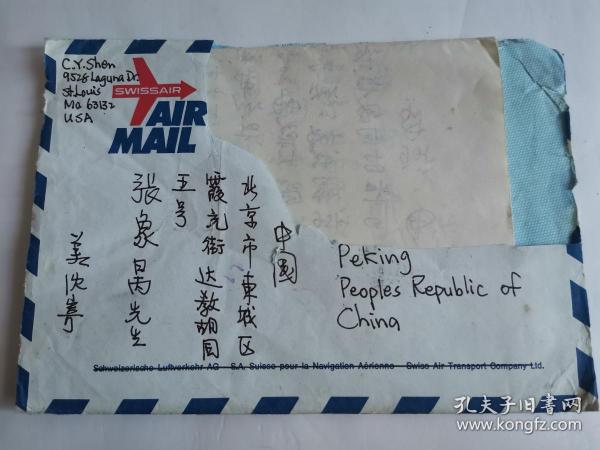 C.Y. Shen
9528 Laguna Dr.
St Louis
Mo 63132
USA
SWISSAIR
AIR
MAIL
中國
北京市東城区
霞光街达教胡同
五号
張象昺先生
美 沈
Peking
Peoples Republic of
China
Schweizerische Luftverkehr AG S.A. Suisse pour la Navigation Aérienne Swiss Air Transport Company Ltd.
孔夫子旧书网
www.kongfz.com